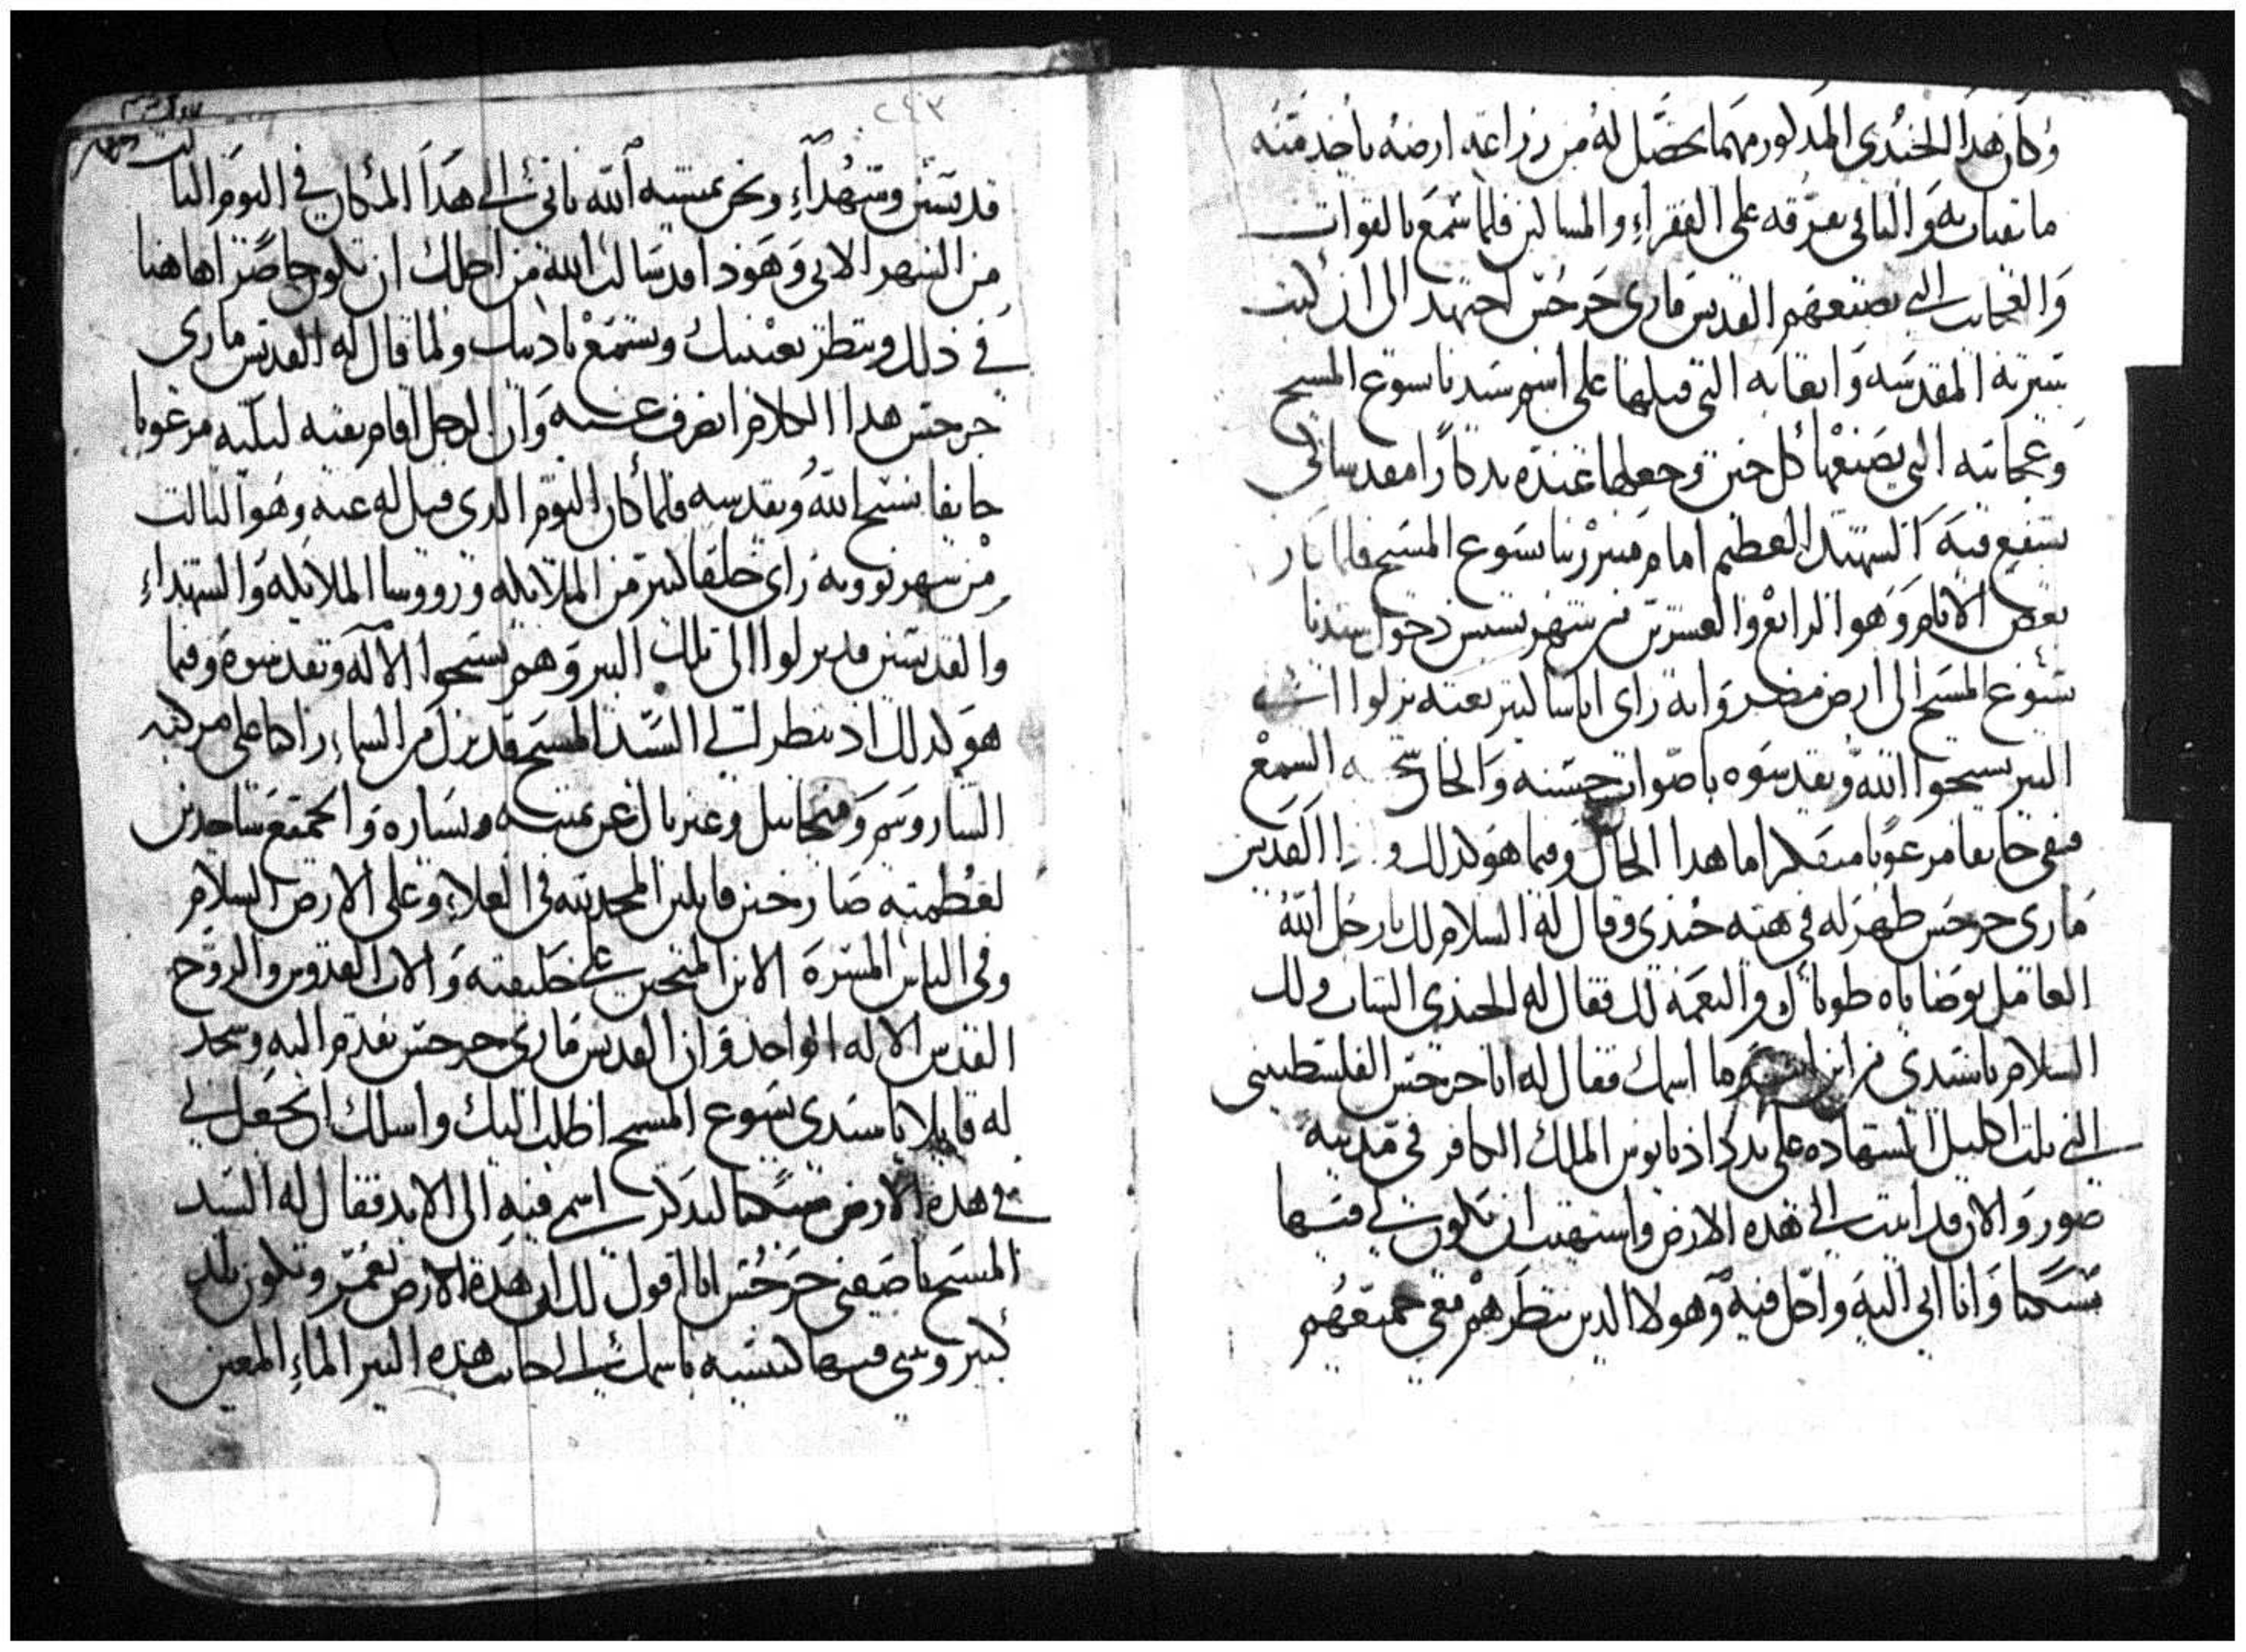 وكان هذا الجندى المدكور مهما يحصل له من زراعة ارضه ياخد منه
ما يقتات به والباقى يفرقه على الفقراء والمساكين فلما سمع بالقوات
والعجايب التي يصنعهم القديس مارى جرجس اجتهد الى ان كتب
سيرته المقدسه واتعابه التي قبلها على اسم سيدنا يسوع المسيح
وعجايبه التي يصنعها كل حين وجعلها عنده تدكارا مقدسا لكى
يشفع فيه الشهيد العظيم امام منبر ربنا يسوع المسيح فلما كان
بعض الايام وهو الرابع والعشرين من شهر بشنس دخول سيدنا
يسوع المسيح الى ارض مصر وانه راى اناسا كتير بعته نزلوا الى
البير يسبحوا الله ويقدسوه باصوات حسنه والحان السمع
فبقى خايفا مرعوبا متفكرا ما هدا الحال وفيما هو كدلك و القديس
مارى جرجس ظهر له في هيه جندى وقال له السلام لك يا رجل الله
العامل بوصاياه طوباك والنعمه لك فقال له الجندي الشاب ولك
السلام يا سيدى من اين وما اسمك فقال له انا جرجس الفلسطيني
الني نلت اكليل الشهاده على يد دكاديانوس الملك الكافر في مدينه
صور والان قد اتيت الي هده الارض واشتهيت ان تكون لي فيها
مسكنا وانا اتى اليه واحل فيه وهولا الدين تنظرهم معى جميعهم
قديسين وشهداء ونحن بمشيه الله ناتى الي هدا المكان في اليوم التالت
من الشهر الاتى وهودا قد سالت الله من اجلك ان تكون حاضرا هاهنا
في دلك وتنظر بعينيك وتسمع بادنيك ولما قال له القديس مارى
جرجس هدا الكلام انصرف عنه وان الرجل اقام بقيه ليلته مرعوبا
خايفا يسبح الله ويقدسه فلما كان اليوم الدى قيل له عنه وهو التالت
من شهر بوونه راى خلقا كتير من الملايكه وروسا الملايكه والشهداء
والقديسين قد نزلوا الى تلك البير وهم يسبحوا الاله ويقدسوه وفيما
هو كدلك اد ينظر الي السيد المسيح قد نزل من السماء راكبا على مركبه
الشاروبيم وميخاييل وغبريال عن يمينه ويساره والجميع ساجدين
لعظمته صارخين قايلين المجد لله في العلاء وعلى الارض السلام
وفى الناس المسره الابن المتحنن على خليقته والاب القدوس والروح
القدس الاله الواحد وان القديس مارى جرجس تقدم اليه وسجد
له قايلا يا سيدى يسوع المسيح اطلب اليك واسلك ان تجعل لي
في هده الارض مسكنا ليدكر اسمى فيه الى الابد فقال له السيد
المسيح يا صفيى جرجس انا اقول لك ان هده الارض تعمر وتكون بلد
كبير وتبنى فيها كنيسه باسمك الى جانب هده البير الماء المعين